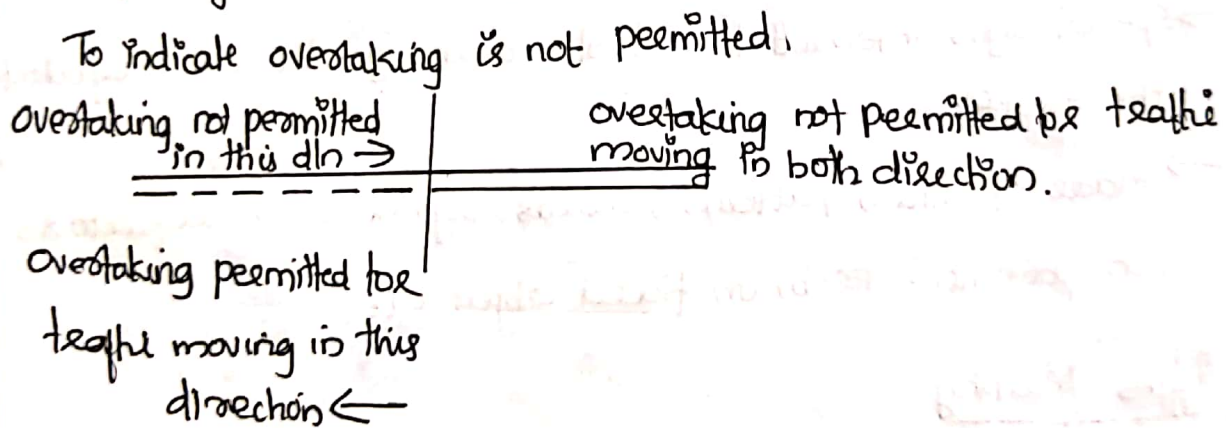 To indicate overtaking is not permitted.
overtaking not permitted
in this dln →
overtaking not permitted for traffic
moving in both direction.
overtaking permitted for
traffic moving in this
direction ←